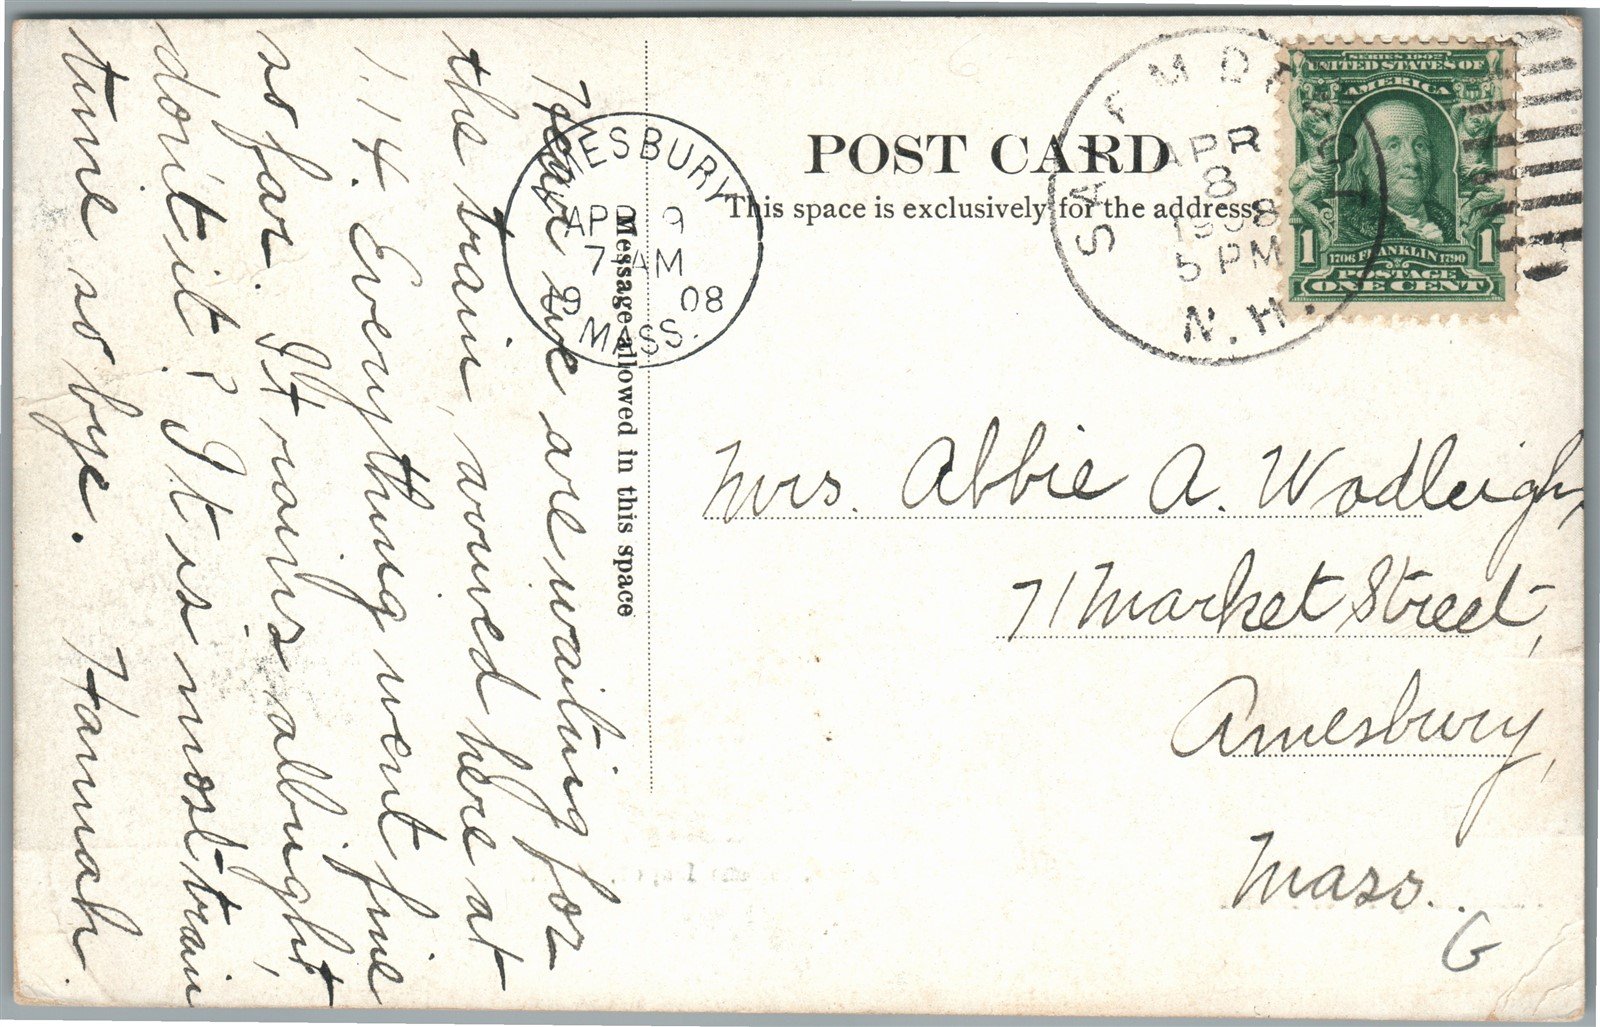 Here we are waiting for
the train, arrived here at
1.14. Everything went fine
so far. It rains allright,
don't it? It is most train
time so bye. Hannah.
Message allowed in this space
AMESBURY
APR 9
7 AM
08
MASS.
POST CARD
This space is exclusively for the address.
APR
8
1908
5 PM
N.H.
SERIES 1902
UNITED STATES OF
AMERICA
1 1706 FRANKLIN 1790 1
POSTAGE
ONE CENT
Mrs. Abbie A. Wadleigh,
71 Market Street,
Amesbury,
Mass.
G